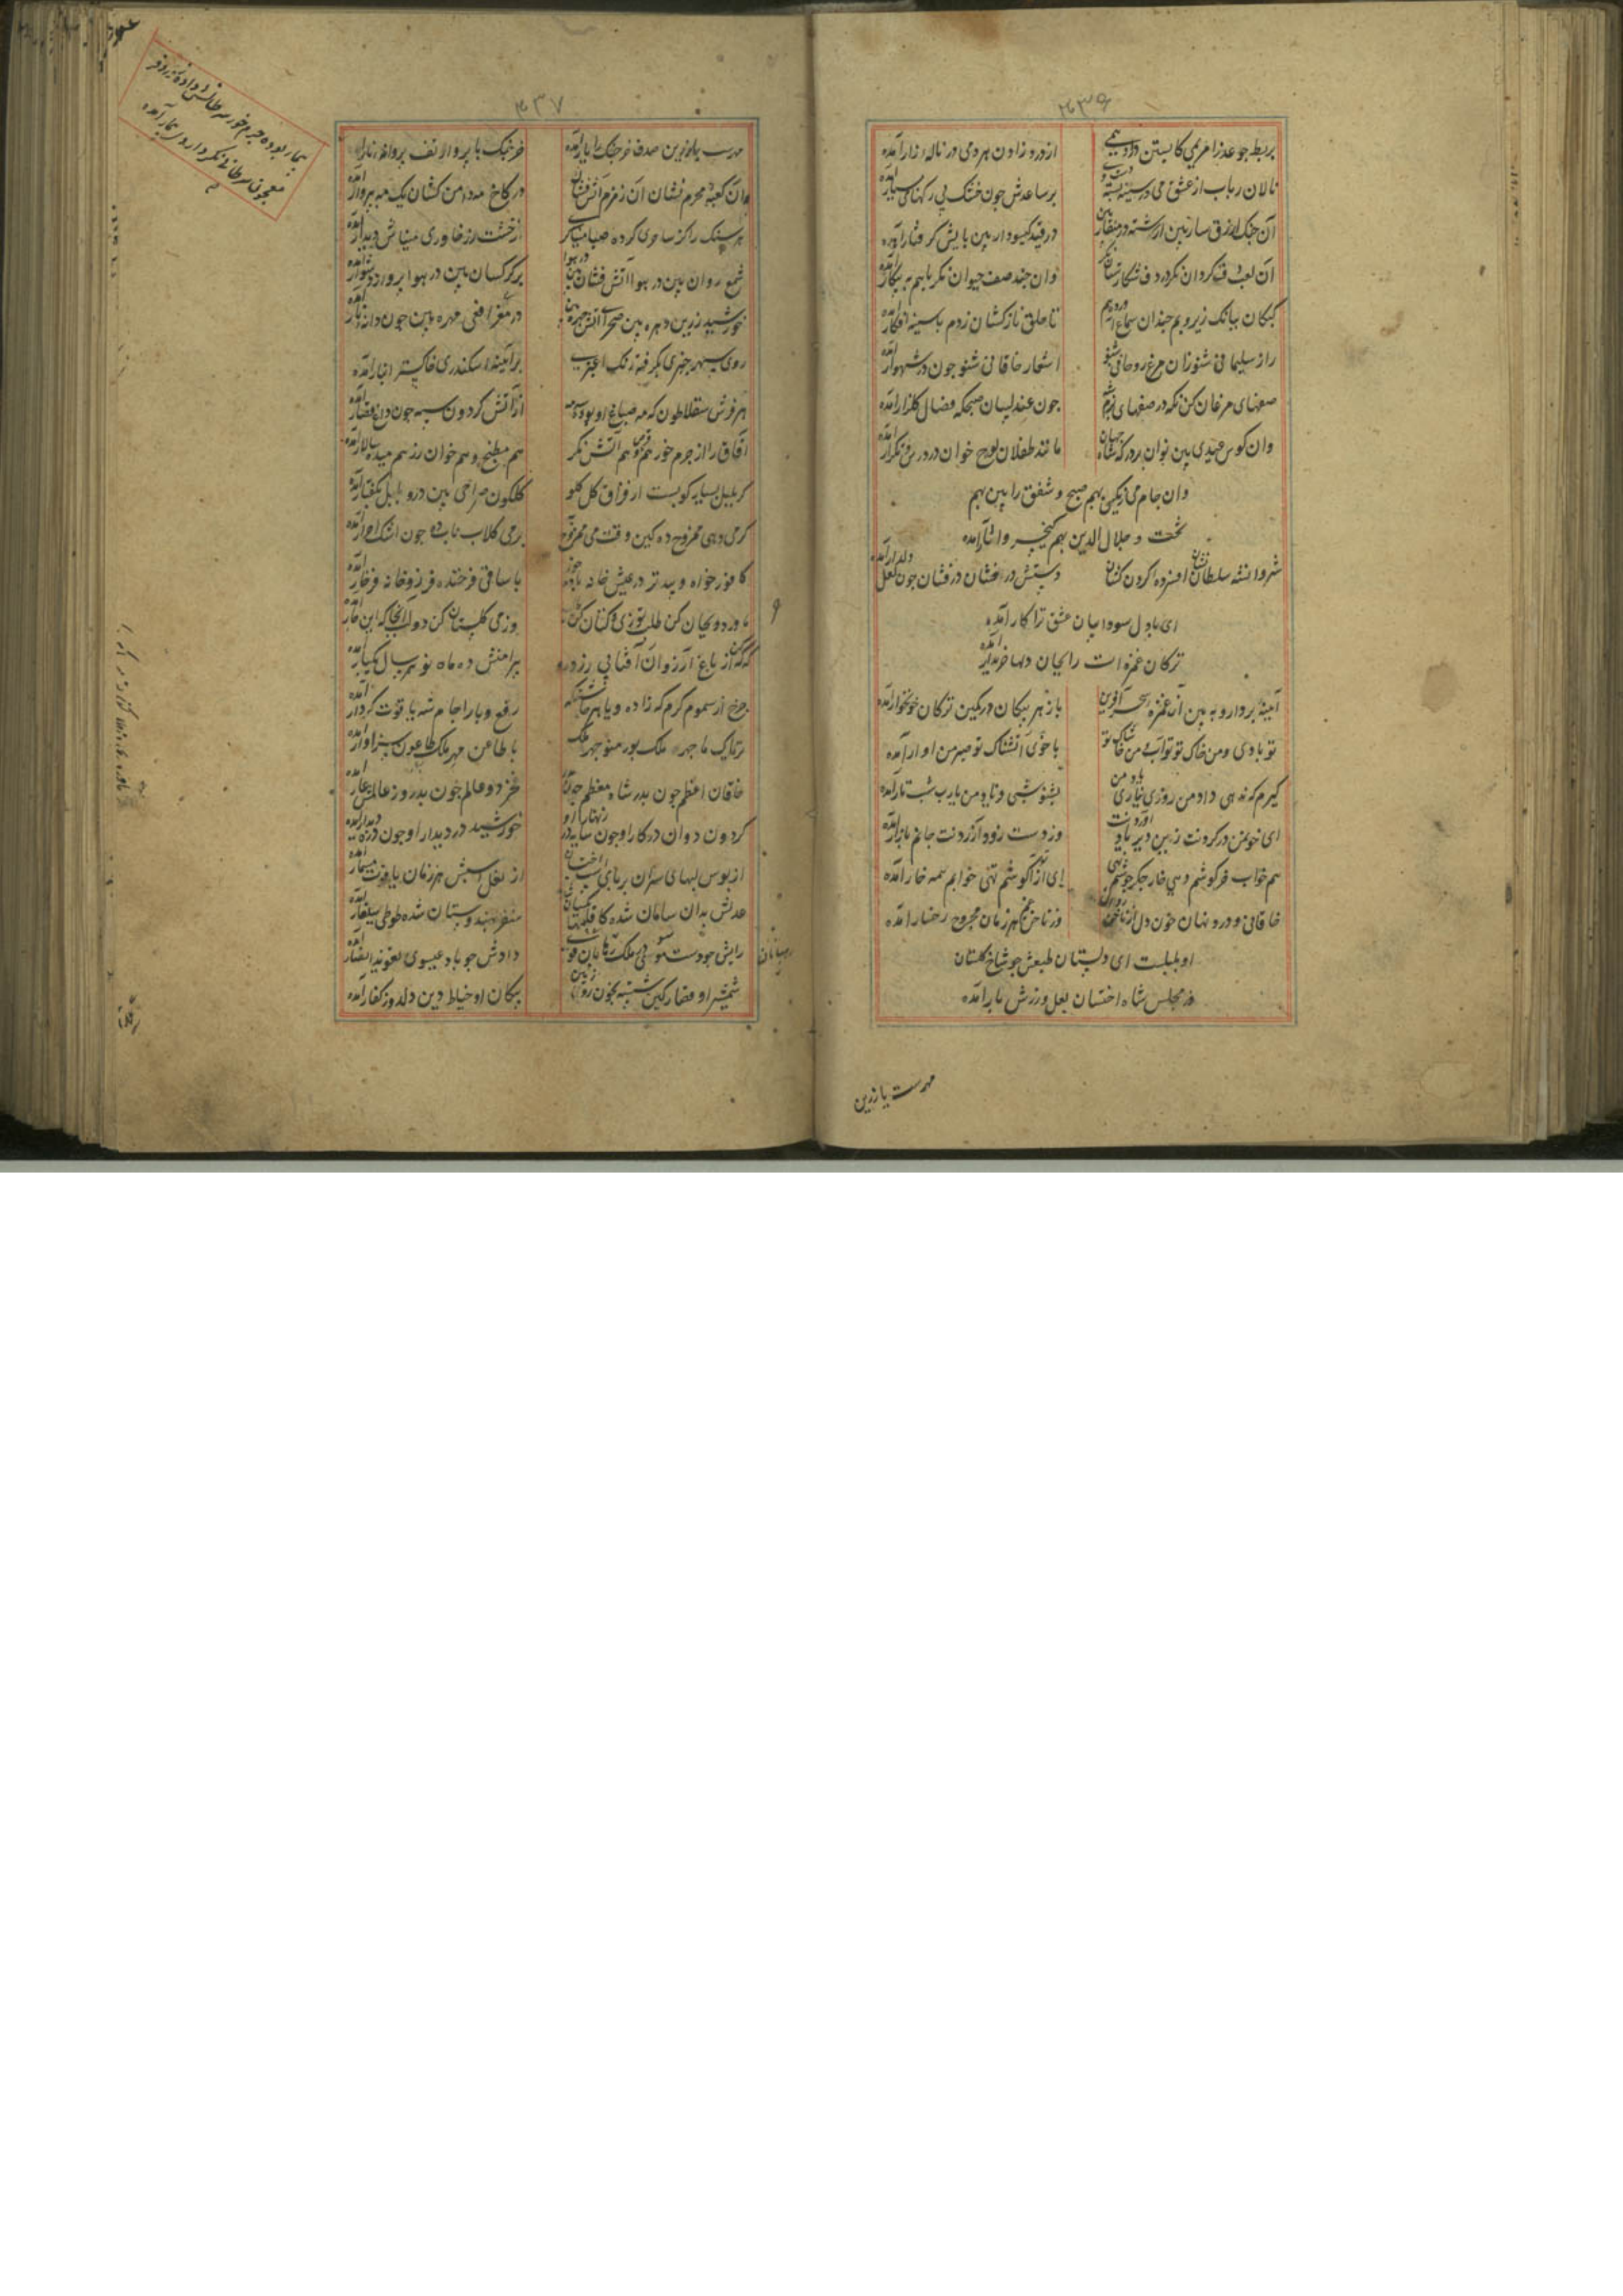 ۴۳۶
بربط چو عذرا مریمی کابستن دارد همی از درد زادن هر دمی در ناله زار آمده
نالان رباب از عشق می در سینه بسته دست وی بر ساعدش چون خشک نی رگهای بسیار آمده
آن چنگ ازرق سار بین زر رشته در منقار بین در قید گیسودار بین پایش گرفتار آمده
آن لعب دف گردان نگر در دف شکارستان نگر وان چند صف حیوان نگر باهم به پیکار آمده
کبکان ببانک زیر و بم چندان سماع آرد بهم تا حلق نازکشان ز دم با سینه افکار آمده
راز سلیمانی شنو زان مرغ روحانی شنو اشعار خاقانی شنو چون در شهوار آمده
صفهای مرغان کن نکه در صفهای بزم شه چون عندلیبان صبحکه فصال کلزار آمده
وان کوس عیدی بین نوان بر درکه شاه جهان مانند طفلان لوح خوان در درس و تکرار آمده
وان جام می زیکی بهم صبح و شفق را بین بهم
تخت و جلال الدین بهم کیخسرو آثار آمده
شروانشه سلطان نشان افسرده گردن کشان دستش در افشان در فشان چون لعل دلدار آمده
ای با دل سوداییان عشق ترا کار آمده
ترکان غمزه ات را بجان دلها خریدار آمده
آیینه بردار و به بین آن غمزه سحر آفرین با زهر پیکان در کمین ترکان خونخوار آمده
تو بادی و من خاک تو تو آب و من خاشاک تو با خوی آتشناک تو صبر من اوار آمده
گیرم که ندهی داد من روزی نیاری یاد من بشنو شبی فریاد من یارب شب تار آمده
ای خون من در کردنت زین دیر یاد آوردنت وز دست زود آزردنت جانم بازار آمده
هم خواب خرگوشم دهی خار جگر جوشم نهی ای از تو آگوشم تهی خوابم همه خار آمده
خاقانی و درد نهان خون دل از ناخن روان وز ناخن غم هر زمان مجروح رخسار آمده
او بلبلت ای دلستان طبعش چو شاخ گلستان
در مجلس شاه اخستان لعل و زرش بار آمده
مهرست یا زرین
۴۳۷
مهرست یا زرین صدف خرچنگ را یار آمده خرچنگ با پروا ز تف پروانه نار آمده
وان کعبه محرم نشان آن زمزم آتش فشان در کاخ مه دامن کشان یک مه به پروار آمده
هر سنک را کز ساحری کرده صبا میناگری از خشت زر خاوری میناش دینار آمده
شمع روان بین در هوا آتش فشان بین در هوا بر کرکسان بین در هوا پرواز دشوار آمده
خورشید زرین دهره بین صحرا آتش چهره بین در مغز افعی مهره بین چون دانه نار آمده
روی سپهر چنبری بگرفته رنک اغبری بر آینه اسکندری خاکستر انبار آمده
هر فرش سقلاطون که مه صباغ او بوده سه از آتش گردون سیه چون داغ قصار آمده
آفاق را از جرم خور هم قرص و هم آتش نگر هم مطبخ و هم خوان زر هم میده سالار آمده
گر بلبل بسیار گو بست از فراق گل گلو گلگون صراحی بین درو بلبل بگفتار آمده
گر می دهی ممزوج ده کین وقت می ممزوج به بر می گلاب ناب ده چون اشک احرار آمده
کافور خواه و بید تر در خیش خانه باده خور با ساقی فرخنده فر زو خانه فرخار آمده
با ورد و ریحان کن طلب توزی و کتان کن سلب وز می گلستان کن دو لب آنجا که این خار آمده
گه گه کن از باغ آرزوان آفتابی زرد رو پیرامنش ده ماه نو هر سال یکبار آمده
چرخ از سموم گرم گه زاده وبا هر چاشتگه رفع وبا را جام شه یاقوت کردار آمده
تریاک ما چهر ملک پور منوچهر ملک با طاعن مهر ملک طاعون سزاوار آمده
خاقان اعظم چون پدر شاه معظم چون فخر دو عالم چون پدر وز عالمش عار آمده
گردون دوان در کار او چون سایه در زنهار او خورشید در دیدار او چون ذره دیدار آمده
از بوس لبهای سران بر پای اسب اخستان از نعل اسبش هر زمان یاقوت مسمار آمده
عدلش بدان سامان شده کاقلیمها یکسان شده سنقر بهندوستان شده طوطی ببلغار آمده
رایش چو دست موسوی در ملک برهان قوی دادش چو باد عیسوی تعویذ انصار آمده
شمشیر او قصار کین شسته بخون روی زمین پیکان او خیاط دین دلدوز کفار آمده
بیمار بوده جرم خور سرطانش داده زور و فر
معجون سرطانی نگر داروی بیمار آمده